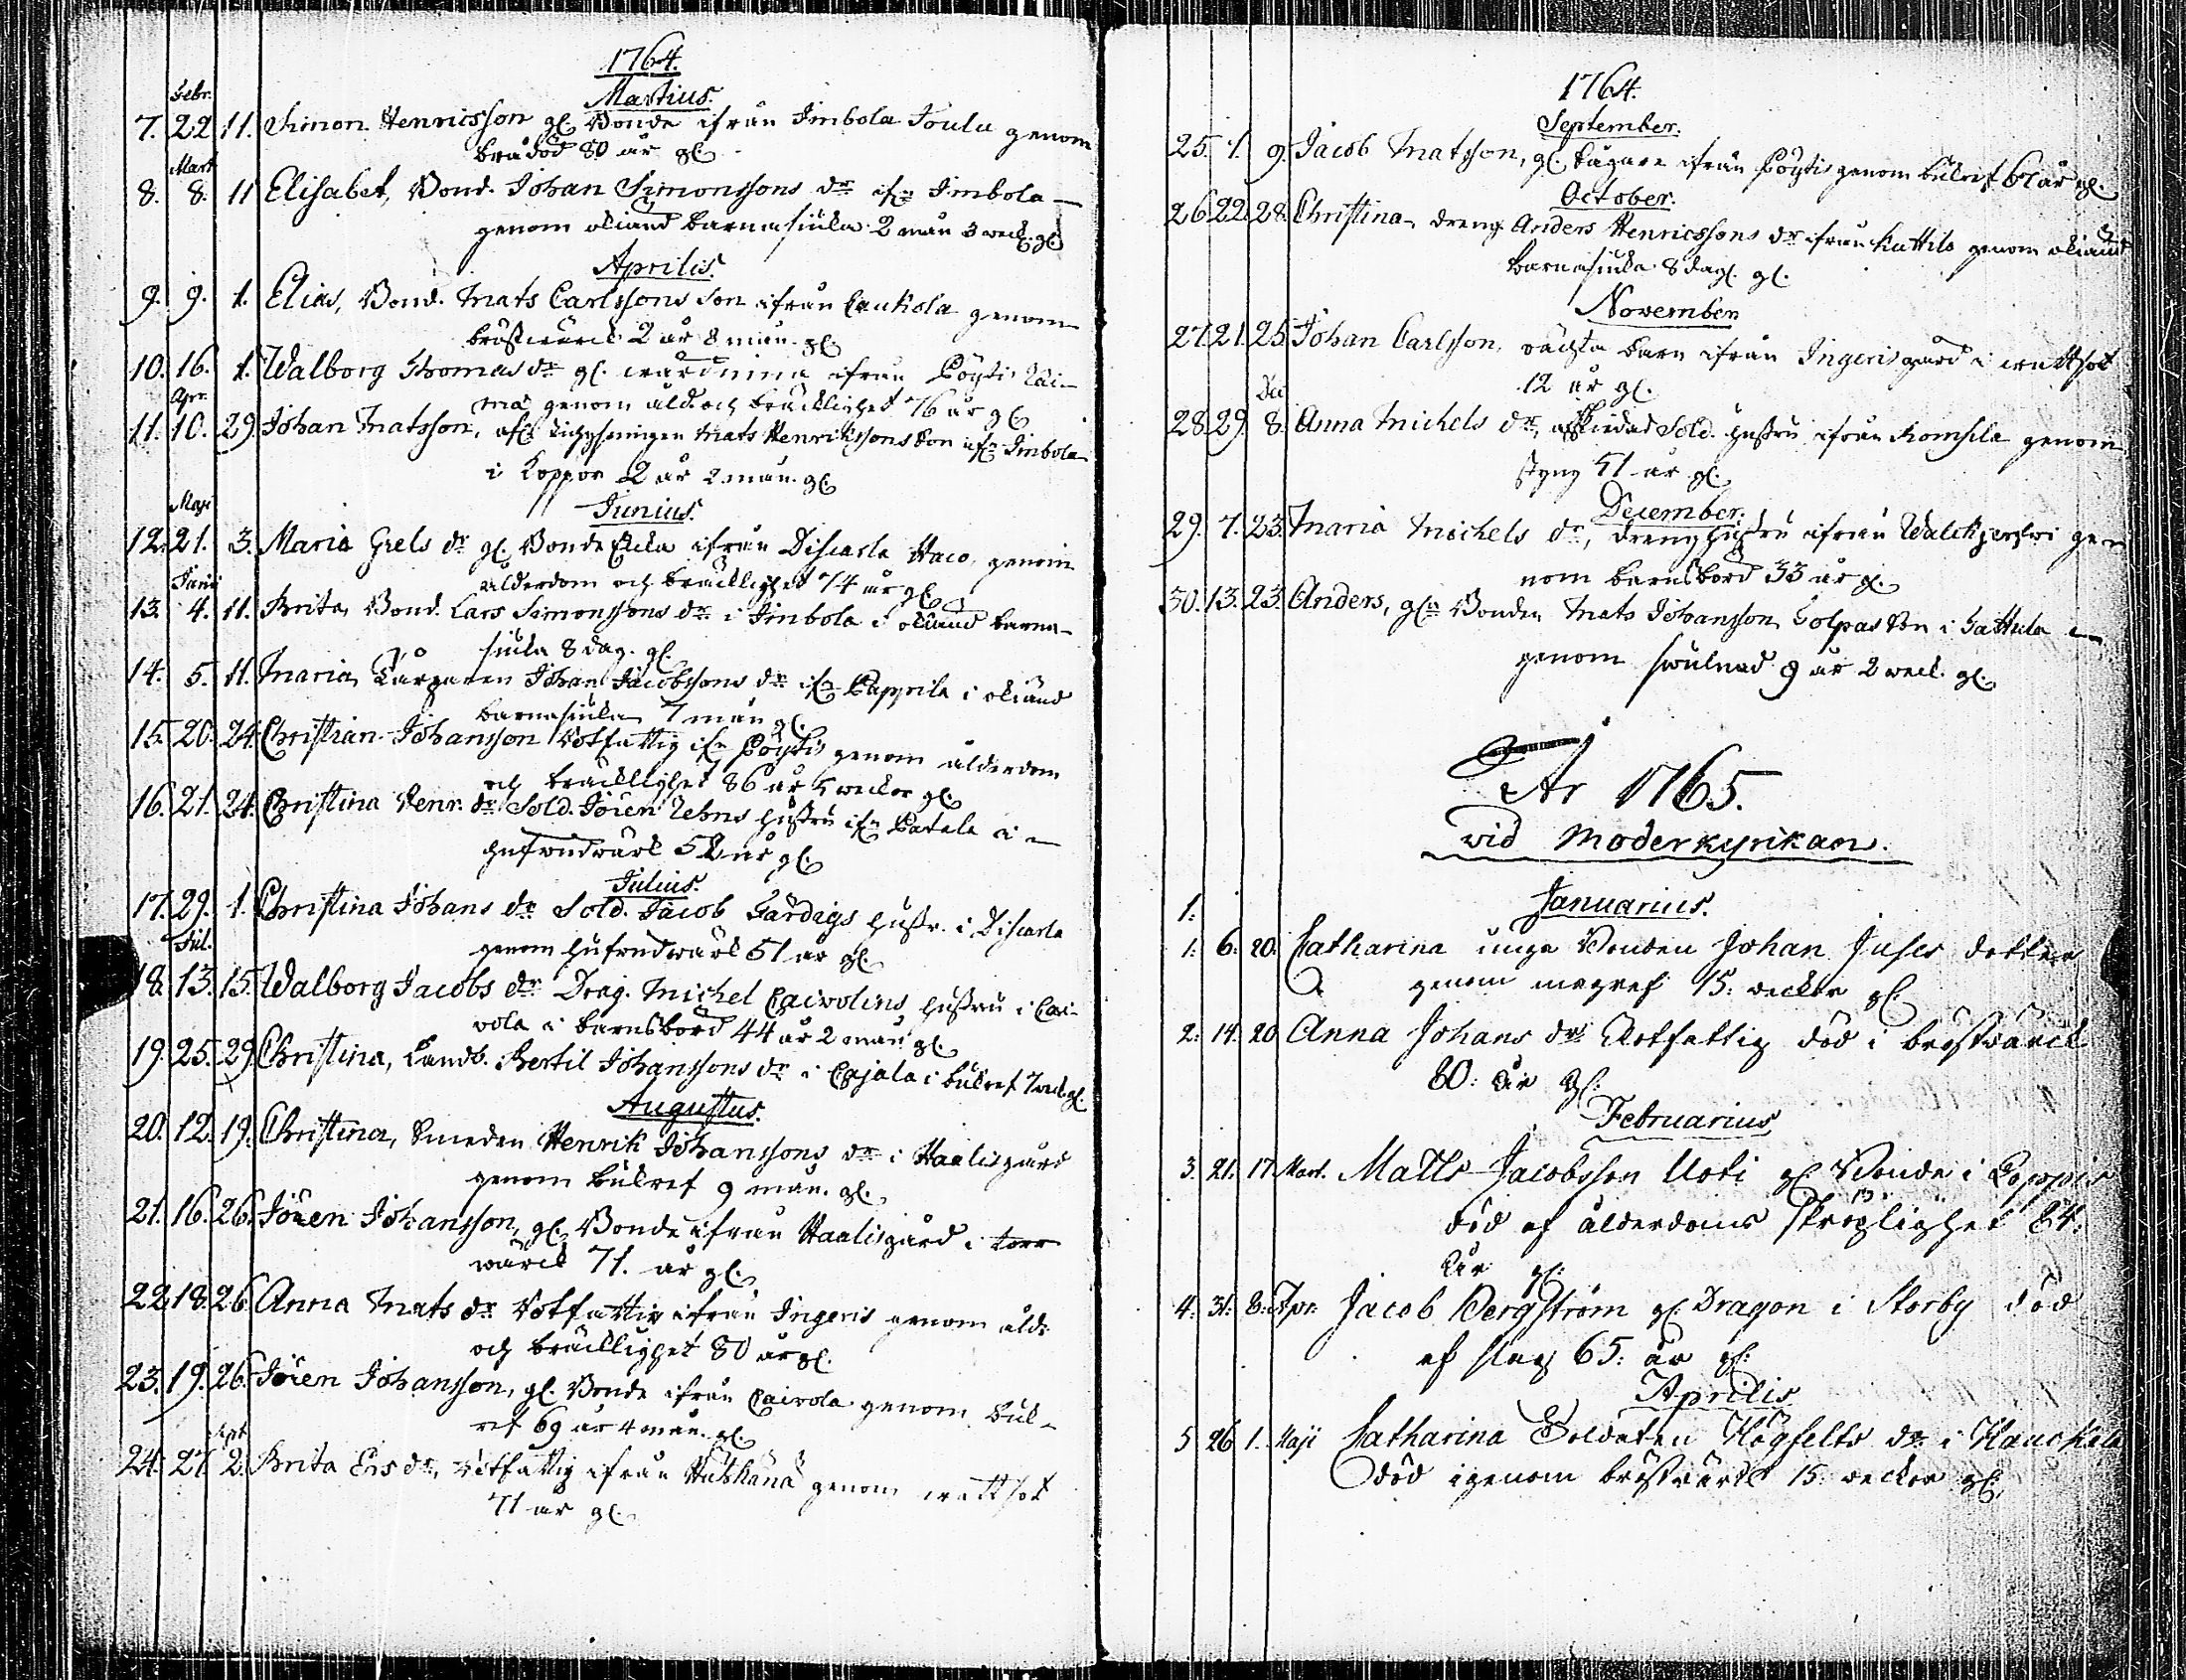 1764.
Martius.
Febr.
7. 22 11. Simon Henricsson gl. Bonde ifrån Jimbola Joula genom
brådöd 80 år gl.
Mart
8. 8. 11 Elisabet, Bond. Johan Simonssons dr ifn Jimbola
genom okiänd barnasiuka 2 mån 3 weck. gl.
Aprilis.
9. 9. 1. Elias, Bond. Mats Carlssons Son ifrån Laukola genom
bröstwärck 2 år 8 mån. gl.
10. 16. 1. Walborg Thomas dr gl. ifrån Pöytis
genom åld. och bräcklighet 76 år gl.
Apr.
11. 10. 29. Johan Matsson, Mats Henrikssons Son ifn Jimbola
i Koppor 2 år 2 mån. gl.
Junius.
Maji
12. 21. 3. Maria Grels dr gl. Bonde Encka ifrån Discarla Haco, genom
ålderdom och bräcklighet 74 år gl.
Junii
13. 4. 11. Brita, Bond. Lars Simonssons dr i Jimbola i okiänd barna-
siuka 8 dag. gl.
14. 5. 11. Maria, Johan Jacobssons dr ifn Papprila i okiänd
barnasiuka 7 mån gl.
15. 20. 24. Christian Johansson Rotfattig ifn Pöytis genom ålderdom
och bräcklighet 86 år 5 weckor gl.
16. 21. 24. Christina Henr. dr Sold. Jören Lehns hustru ifn Patala i
hufwudwärk 52 år gl.
Julius.
17. 29. 1. Christina Johans dr Sold. Jacob Färdigs hustr. i Discarla
genom hufwudwärk 51 år gl.
Jul.
18. 13. 15. Walborg Jacobs dr Drag. Michel Caivolins hustru i Cai-
vola i barnsbörd 44 år 2 mån gl.
19. 25. 29. Christina, Landb. Bertil Johanssons dr i Cajala i bukref 7 weck. gl.
Augustus.
20. 12. 19. Christina, Smeden Henrik Johanssons dr i Haalisgård
genom bukref 9 mån. gl.
21. 16. 26. Jören Johansson, gl. Bonde ifrån Haalisgård i torr
wärck 71. år gl.
22. 18. 26. Anna Mats dr Rotfattig ifrån Ingeris genom åld.
och bräcklighet 80 år gl.
23. 19. 26. Jören Johansson, gl. Bonde ifrån Caivola genom buk-
ref 69 år 4 mån. gl.
Sept
24. 27. 2. Brita Ers dr, Rotfattig ifrån genom wattsot
71 år gl.
1764.
September.
25. 1. 9. Jacob Matsson, gl. ifrån Pöytis genom bukref 67 år gl.
October.
26. 22. 28. Christina, dreng Anders Henricssons dr ifrån Kattila genom okiänd
barnasiuka 8 dag. gl.
November
27. 21. 25. Johan Carlsson, oächta barn ifrån Ingerisgård i wattsot
12 år gl.
Dec
28. 29. 8. Anna Michels dr, afskiedad Sold. hustru ifrån Romsila genom
styng 51 år gl.
December.
29. 7. 23. Maria Michels dr, dreng hustru ifrån Walckjerfwi ge-
nom barnsbörd 33 år gl.
30. 13. 23. Anders, gln Bonden Mats Johansson Golpas Son i Gattula
genom swulnad 9 år 2 weck. gl.
År 1765.
vid Moderkyrikan.
Januarius.
1:
1: 6: 20: Catharina unga Bonden Johan Juses dotter
genom magref 15: weckor gl.
2: 14: 20 Anna Johans dr Rotfattig död i bröstwärck
80: år gl:
Februarius
3. 21. 17. Mart. Matts Jacobsson Uoti gl Bonde i Poppis
död af ålderdoms skröplighet 84:
år gl:
4: 31. 8: Apr: Jacob Bergström gl Dragon i Storby död
af slag 65: år gl:
Aprilis
5 26 1. Maji Catharina Soldaten Högfelts dr i Hauckela
död igenom bröstwärk 15: weckor gl.